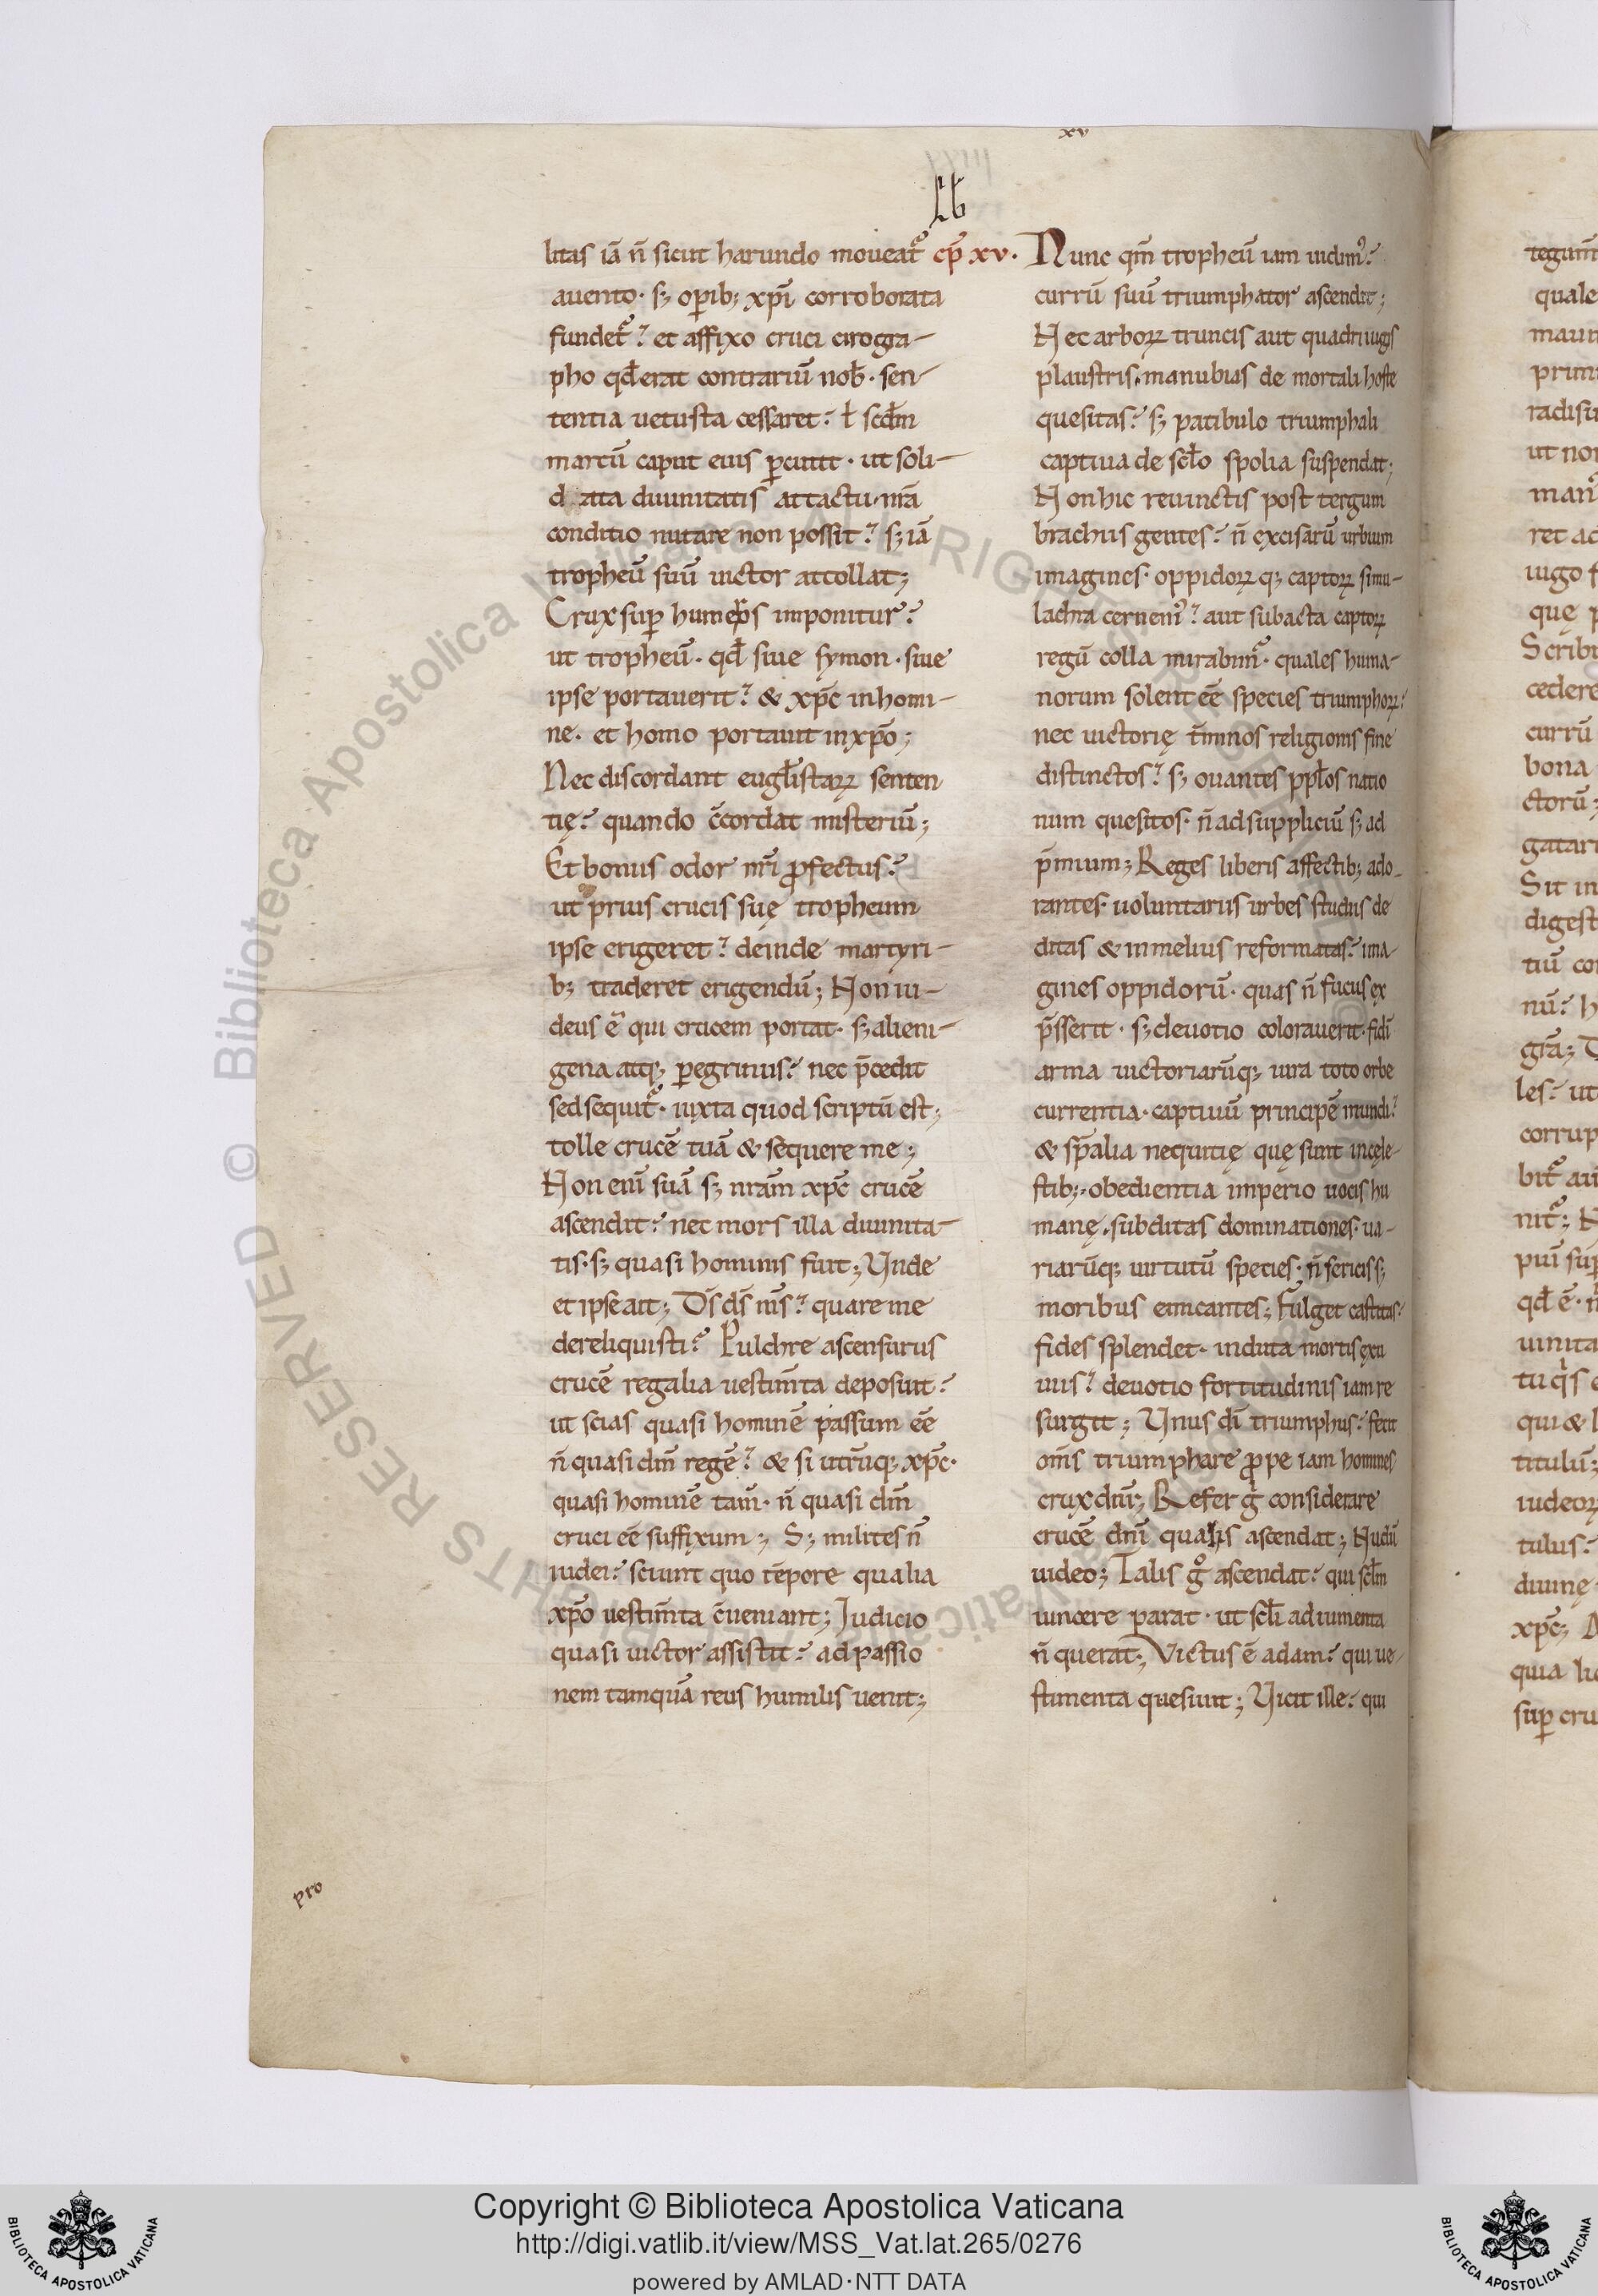 xv
Lb
litas iā n̄ sicut harundo moueat᷑
auento· sꝫ oꝑibꝫ xp̄i corroborata
fundet᷑? et affixo cruci cirogra-
pho qđ erat contrariū nob̄· sen-
tentia uetusta cessaret? ł scđm
martū caput eius ꝑcutit· ut soli-
d ata diuinitatis attactu· nr̄a
conditio nutare non possit? sꝫ iā
tropheū suū uictor attollat;
Crux suꝑ humeros imponitur?
ut tropheū· qđ siue symon· siue
ipse portauerit? & xp̄c in homi-
ne· et homo portauit in xp̄o;
Nec discordant eugl̄istaꝝ senten
tię? quando c̄cordat misteriū;
Et bonus odor nr̄i ꝓfectus?
ut prius crucis suę tropheum
ipse erigeret? deinde martyri-
bꝫ traderet erigendū; Non iu-
deus ē qui crucem portat· sꝫ alieni-
gena atqꝫ ꝑegrinus? nec p̄cedit
sed sequit᷑· iuxta quod scriptū est;
tolle crucē tuā & sequere me;
Non enī suā sꝫ nr̄am xp̄c crucē
ascendit? nec mors illa diuinita-
tis· sꝫ quasi hominis fuit; Unde
et ipse ait; D̄s d̄s m̄s? quare me
dereliquisti? Pulchre ascensurus
crucē regalia uestim̄ta deposuit?
ut scias quasi hominē passum eē
n̄ quasi dm̄ regē? & si utrūqꝫ xp̄c·
quasi hominē tam̄· n̄ quasi dm̄
cruci eē suffixum; Sꝫ milites n̄
iudei? sciunt quo tēpore qualia
xp̄o uestim̄ta c̄ueniant; Iudicio
quasi uictor assistit? ad passio
nem tamquā reus humilis uenit;
cp̄ xv· Nunc qm̄ tropheū iam uidim᷒?
currū suū triumphator ascendit;
Nec arboꝝ truncis aut quadriiugis
plaustris· manubias de mortali hoste
quesitas? sꝫ patibulo triumphali
captiua de scł̄o spolia suspendat;
Non hic reuinctis post tergum
brachiis gentes? n̄ excisarū urbium
imagines· oppidoꝝqꝫ captoꝝ simu-
lachra cernem᷒? aut subacta captoꝝ
regū colla mirabim᷑· quales huma-
norum solent eē species triumphoꝝ?
nec uictorię t̄minos religionis fine
distinctos? sꝫ ouantes ppłos natio
num quesitos· n̄ ad suppliciū sꝫ ad
p̄mium; Reges liberis affectibꝫ ado-
rantes· uoluntariis urbes studiis de
ditas & in melius reformatas? ima-
gines oppidorū· quas n̄ fucus ex
p̄sserit· sꝫ deuotio colorauerit· fidī
arma uictoriarūqꝫ iura toto orbe
currentia· captiuū principē mundi?
& sp̄alia nequitię quę sunt in cęle-
stibꝫ· obedientia imperio uocis hu
manę· subditas dominationes· ua-
riarūqꝫ uirtutū species· n̄ sericis sꝫ
moribus emicantes; Fulget castitas?
fides splendet· induta mortis exu
uiis? deuotio fortitudinis iam re
surgit; Unus dī triumphus? fecit
om̄s triumphare ꝓpe iam homines
crux dn̄i; Refer g̊ considerare
crucē dn̄i qualis ascendat; Nudū
uideo; Talis g̊ ascendat? qui scłm
uincere parat· ut scłi adiumenta
n̄ querat; Victus ē adam? qui ue-
stimenta quesiuit; Uicit ille? qui
pro
Copyright © Biblioteca Apostolica Vaticana
http://digi.vatlib.it/view/MSS_Vat.lat.265/0276
powered by AMLAD·NTT DATA